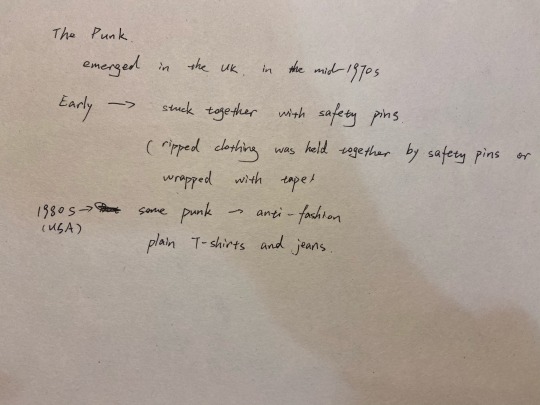 The Punk.
emerged in the UK. in the mid-1970s
Early → stuck together with safety pins.
( ripped clothing was held together by safety pins or
wrapped with tape)
1980s → some punk → anti-fashion
(USA)
plain T-shirts and jeans.